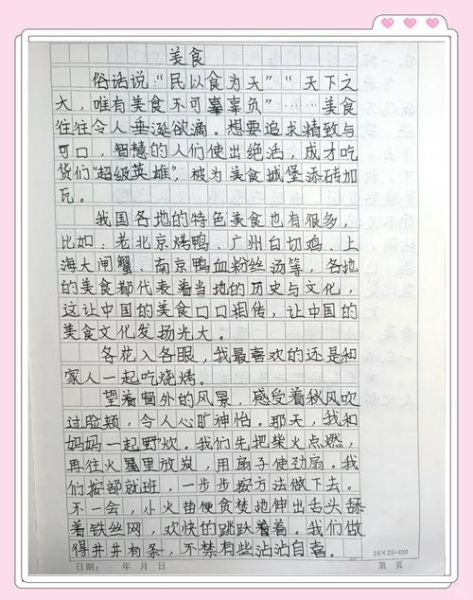 美食
俗话说“民以食为天”“天下之
大，唯有美食不可辜辜负”……美食
往往令人垂涎欲滴。想要追求精致与
可口，智慧的人们使出绝活，成才吃
货们“超级英雄”，被为美食城堡添砖加
瓦。
我国各地的特色美食也有很多，
比如：老北京烤鸭、广州白切鸡、上
海大闸蟹、南京鸭血粉丝汤等，各地
的美食都代表着当地的历史与文化，
这让中国的美食口口相传，让中国的
美食文化发扬光大。
各花入各眼，我最喜欢的还是和
家人一起吃烧烤。
望着窗外的风景，感受着秋风吹
过脸颊，令人心旷神怡。那天，我和
妈妈一起野炊。我们先把柴火点燃，
再往火里放炭，用扇子使劲扇。我
们按部就班，一步步按方法做下去。
不一会，小火苗便贪婪地伸出舌头舔
着铁丝网，欢快的跳跃着。我们做
得井井有条，不禁有些沾沾自喜。
16×25=400
日期： 年 月 日 第 页